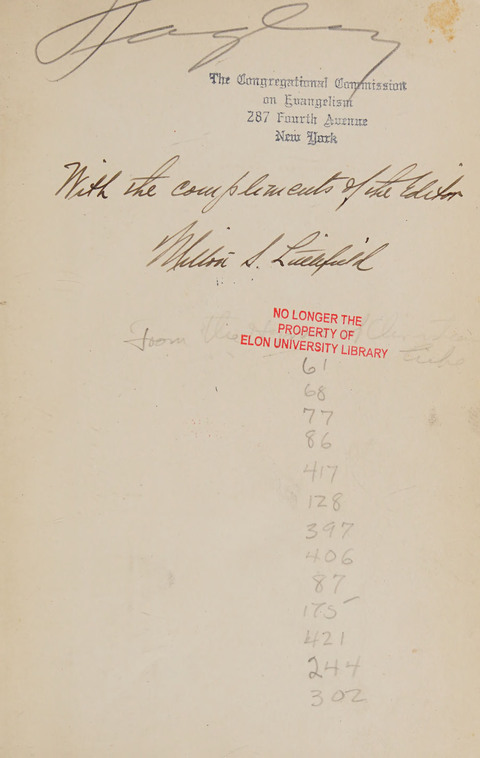 The Congregational Commission
on Evangelism
287 Fourth Avenue
New York
With the compliments of the Editor
Milton S. Littlefield
NO LONGER THE
PROPERTY OF
ELON UNIVERSITY LIBRARY
From the of
61
68
77
86
417
128
397
406
87
175
421
244
302